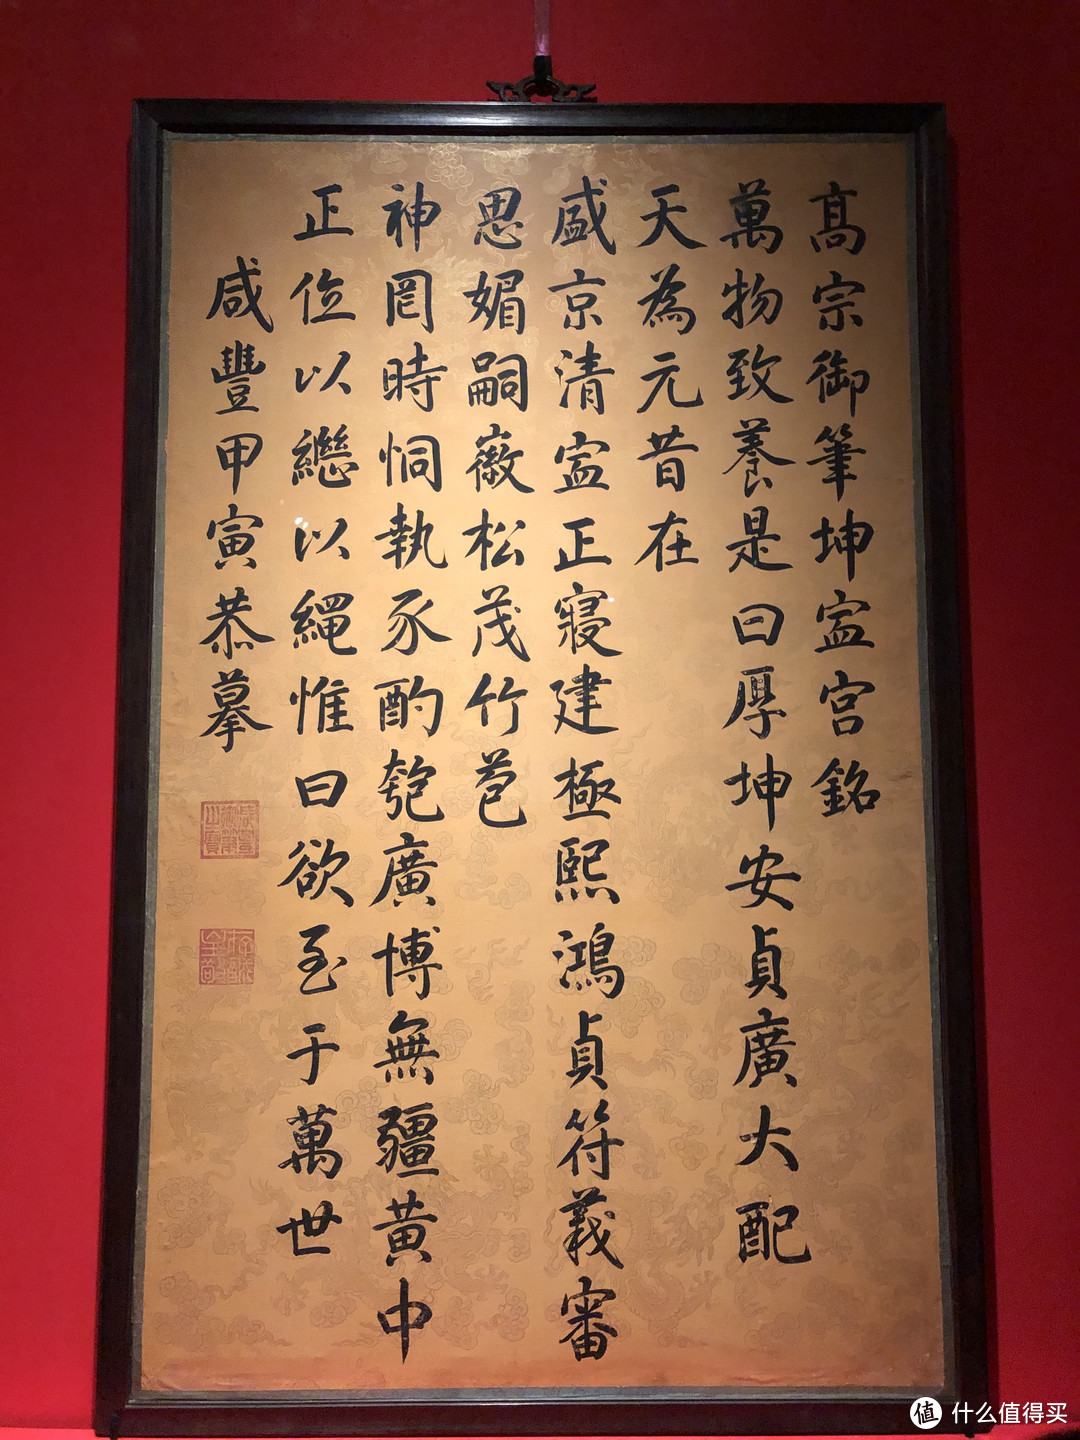 高宗御筆坤寍宮銘
萬物致養是曰厚坤安貞廣大配
天為元昔在
盛京清寍正寢建極熙鴻貞符義審
思媚嗣徽松茂竹苞
神罔時恫執豕酌匏廣博無疆黃中
正位以繼以繩惟曰欲至于萬世
咸豐甲寅恭摹
咸豐御筆之寶
值 什么值得买